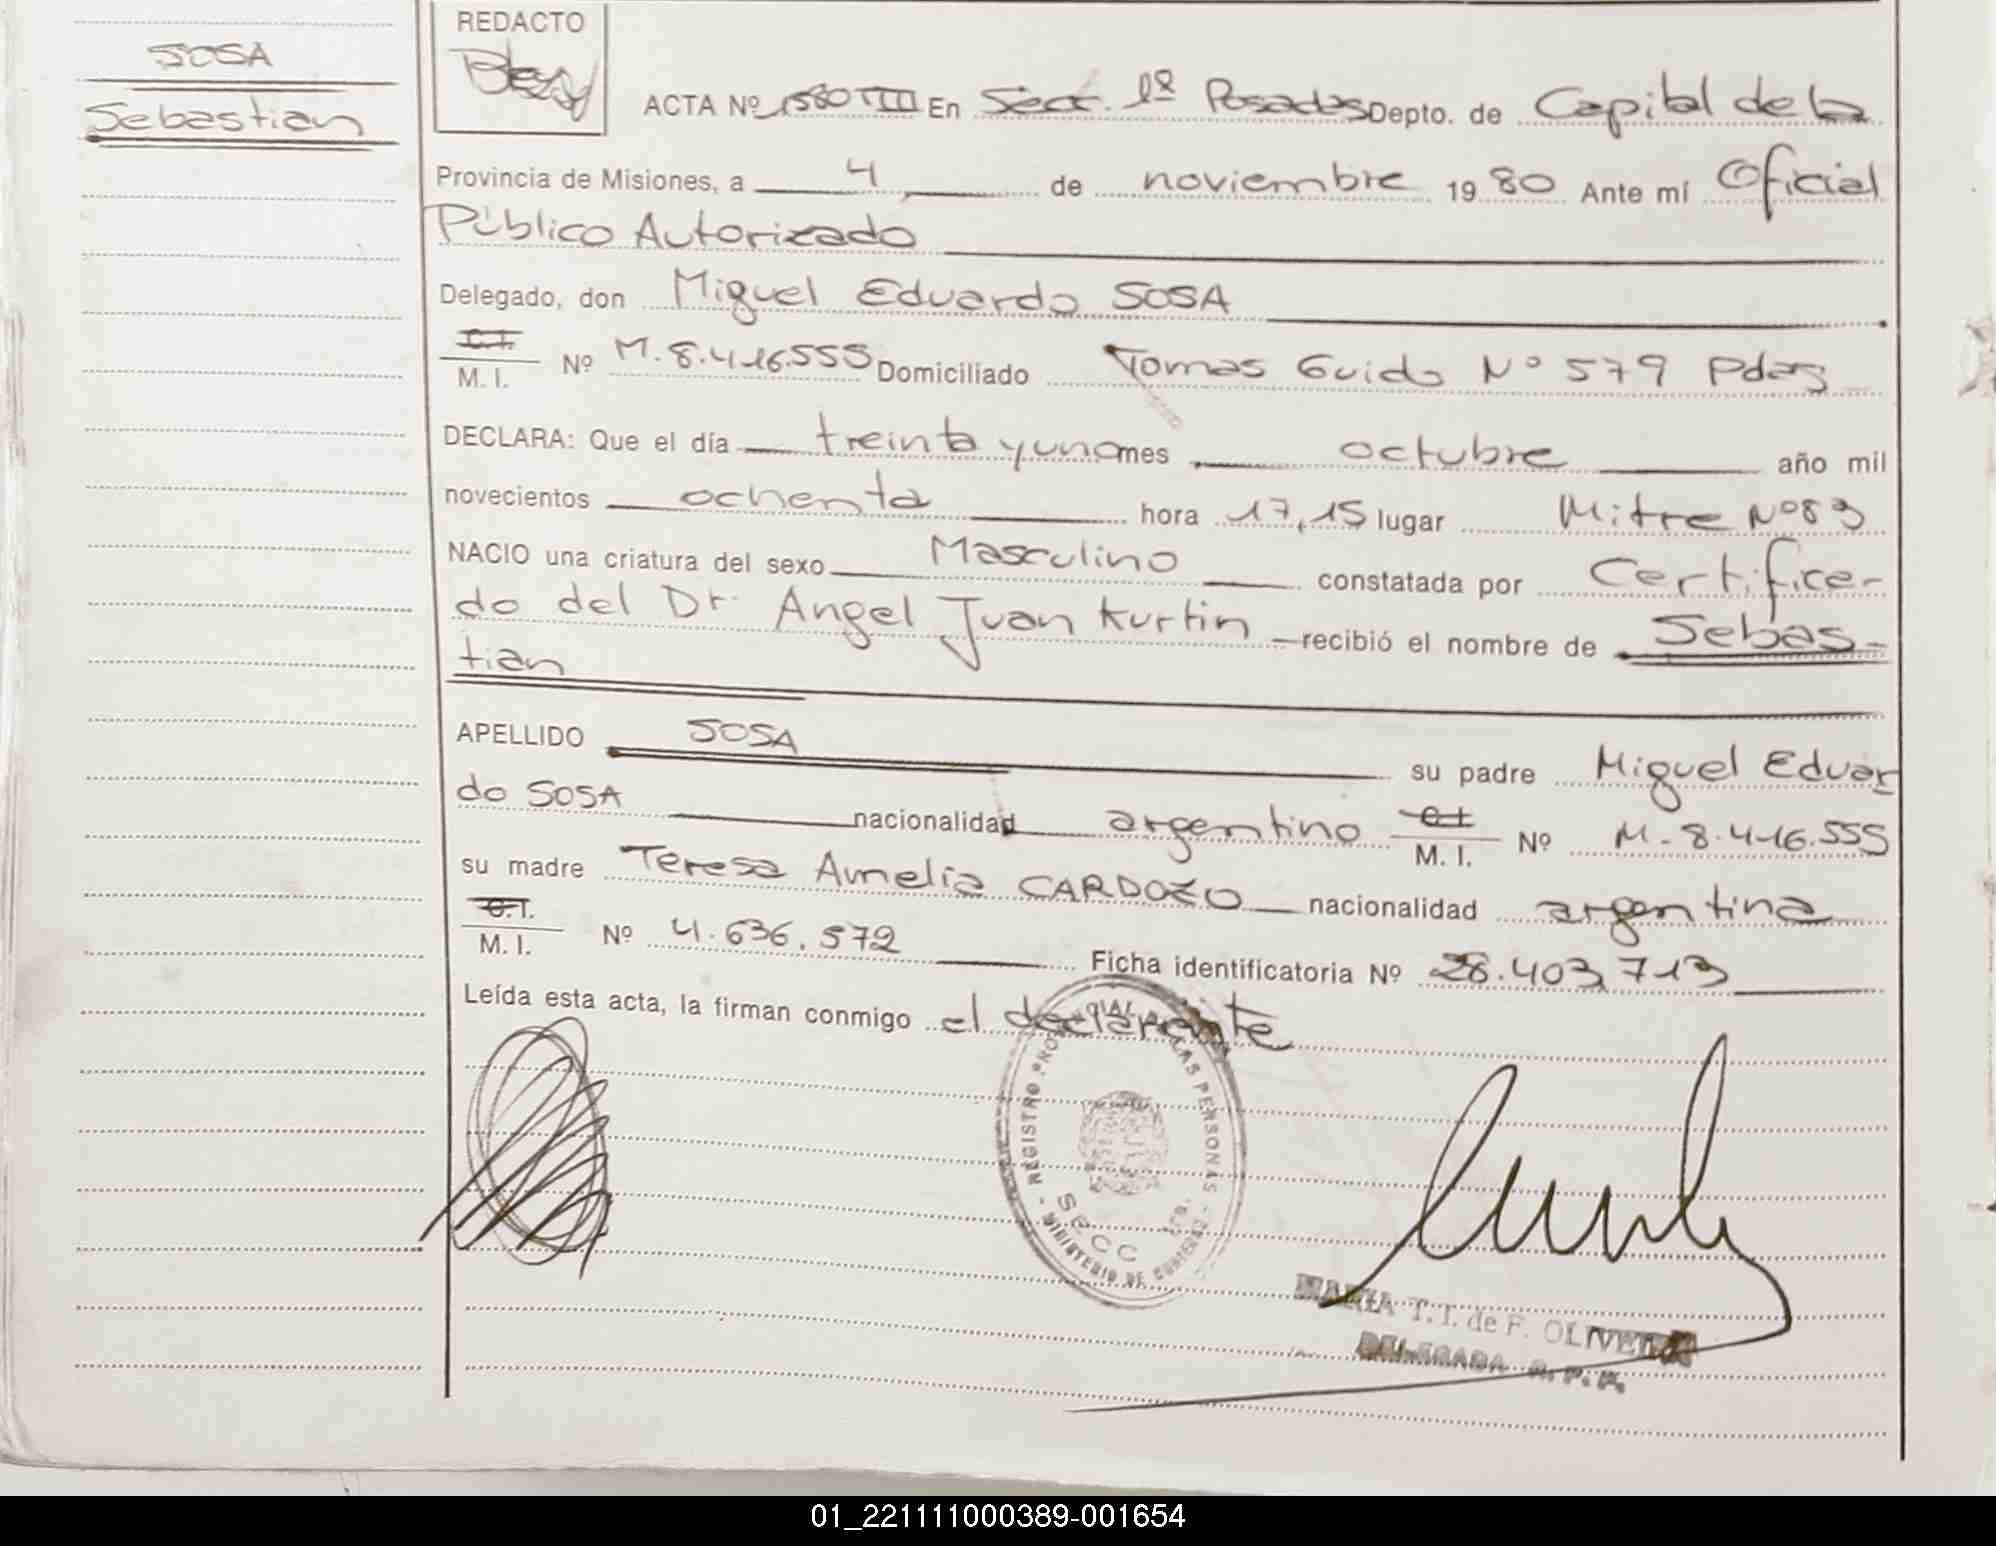 SOSA
Sebastian
REDACTO
ACTA Nº 1580 TIII En Secc. 1ª Posadas Depto. de Capital de la
Provincia de Misiones, a 4 de noviembre 1980 Ante mí Oficial
Público Autorizado
Delegado, don Miguel Eduardo SOSA
C.I.
M. I. Nº M. 8.416.555 Domiciliado Tomas Guido Nº 579 Pdas
DECLARA: Que el día treinta y uno mes octubre año mil
novecientos ochenta hora 17,15 lugar Mitre Nº 83
NACIO una criatura del sexo Masculino constatada por Certifica-
do del Dr. Angel Juan Kurtin recibió el nombre de Sebas-
tian
APELLIDO SOSA su padre Miguel Eduar
do SOSA nacionalidad argentino C.I.
M. I. Nº M. 8.416.555
su madre Teresa Amelia CARDOZO nacionalidad argentina
C.I.
M. I. Nº 4.636.572 Ficha identificatoria Nº 28.403,713
Leída esta acta, la firman conmigo el declarante
REGISTRO PROVINCIAL DE LAS PERSONAS
SECC
MINISTERIO DE GOBIERNO
MARIA T. I. de F. OLIVEIRA
DELEGADA R. P. P.
01_221111000389-001654